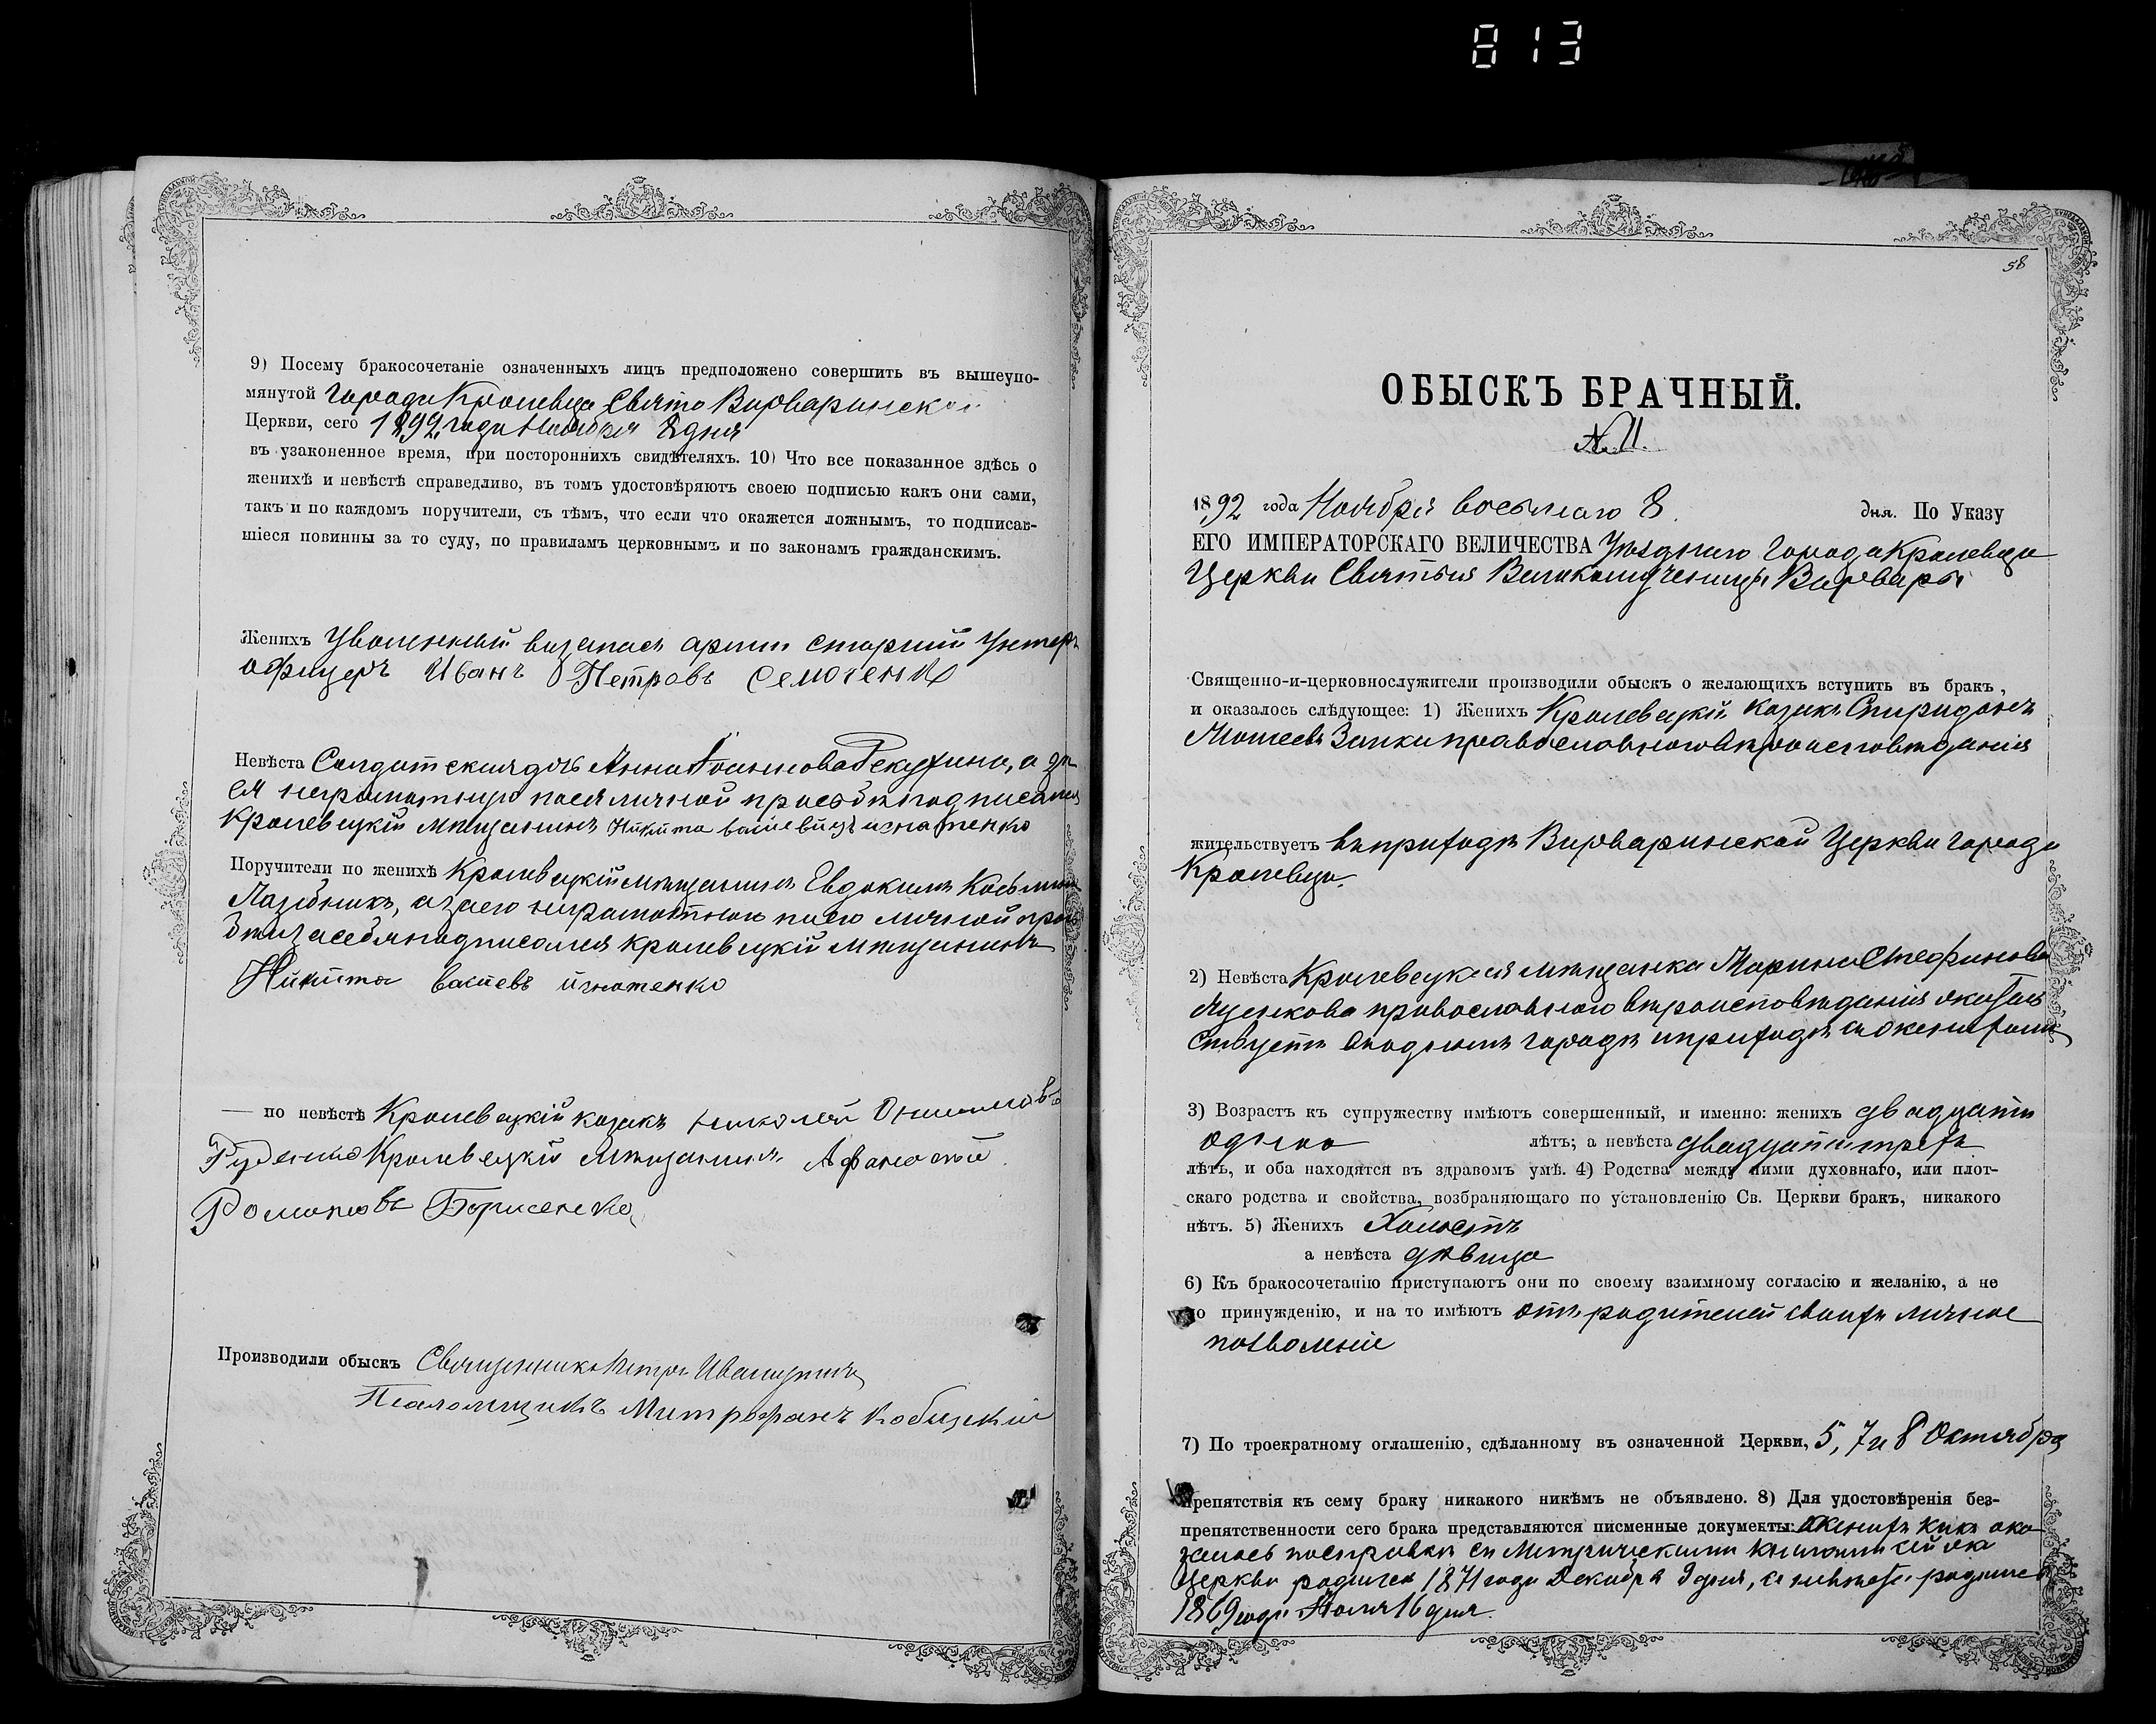 813
9) Посему бракосочетаніе означенныхъ лицъ предположено совершить въ вышеупо-
мянутой города Кролевца Свято Варваринской
Церкви, сего 1892 года Ноября 8 дня
въ узаконенное время, при постороннихъ свидѣтеляхъ. 10) Что все показанное здѣсь о
женихѣ и невѣстѣ справедливо, въ томъ удостовѣряютъ своею подписью какъ они сами,
такъ и по каждомъ поручители, съ тѣмъ, что если что окажется ложнымъ, то подписав-
шіеся повинны за то суду, по правиламъ церковнымъ и по законамъ гражданскимъ.
Женихъ Уволенный въ запасъ арміи старшій Унтеръ
офицеръ Иванъ Петровъ
Невѣста Солдатская дочь Анна а за
ея неграмотную по ея личной просьбѣ подписался
Кролевецкій мѣщанинъ Никита игнатенко
Поручители по женихѣ Кролевецкій мѣщанинъ Евдокимъ Косьминъ
Лазебникъ, а за его неграмотного по его личной прось
бѣ и за себя подписался кролевецкій мѣщанинъ
Никита игнатенко
— по невѣстѣ Кролевецкій козакъ николай
Руденко Кролевецкій Мѣщанинъ Афанасій
Романовъ Борисенко
Производили обыскъ Священникъ Петръ
Псаломщикъ Митрофанъ
58
ОБЫСКЪ БРАЧНЫЙ.
№ 11.
1892 года Ноября восьмаго 8 дня. По Указу
ЕГО ИМПЕРАТОРСКАГО ВЕЛИЧЕСТВА Уѣзднаго Города Кролевца
Церкви Святыя Великомученицы Варвары
Священно-и-церковнослужители производили обыскъ о желающихъ вступить въ бракъ,
и оказалось слѣдующее: 1) Женихъ Кролевецкій козакъ Спиридонъ
Моисеевъ Заика православного вѣроисповѣданія
жительствуетъ въ приходѣ Варваринской Церкви города
Кролевца.
2) Невѣста Кролевецкая мѣщанка Марина Стефанова
православного вѣроисповѣданія жител
ствуетъ въ одномъ городѣ и приходѣ съ женихомъ
3) Возрастъ къ супружеству имѣютъ совершенный, и именно: женихъ двадцати
одного лѣтъ; а невѣста двадцати трехъ
лѣтъ, и оба находятся въ здравомъ умѣ. 4) Родства между ними духовнаго, или плот-
скаго родства и свойства, возбраняющаго по установленію Св. Церкви бракъ, никакого
нѣтъ. 5) Женихъ Холостъ
а невѣста дѣвица
6) Къ бракосочетанію приступаютъ они по своему взаимному согласію и желанію, а не
по принужденію, и на то имѣютъ отъ родителей своихъ личное
позволеніе
7) По троекратному оглашенію, сдѣланному въ означенной Церкви, 5, 7 и 8 Октября
препятствія къ сему браку никакого никѣмъ не объявлено. 8) Для удостовѣренія без-
препятственности сего брака представляются писменные документы: Женихъ какъ ока
залось по справкѣ съ Метрическими книгами сей же
Церкви родился 1871 года Декабря 9 дня, а невѣста родилась
1869 года Іюля 16 дня.